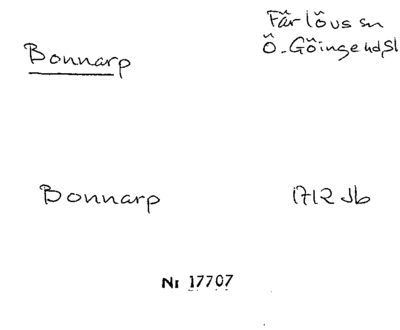 Färlövs sn
Ö. Göinge hd, Sk
Bonnarp
Bonnarp 1712 Jb
Nr 17707